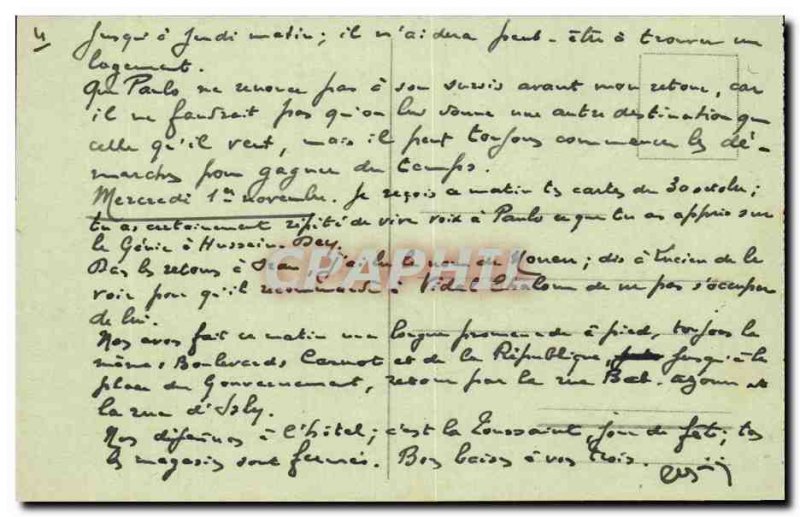 4
Jusqu'à Jeudi matin; il m'aidera peut-être à trouver un
logement.
Que Paulo ne renonce pas à son sursis avant mon retour, car
il ne faudrait pas qu'on lui donne une autre destination que
celle qu'il veut, mais il peut toujours commencer les dé-
marches pour gagner du temps.
Mercredi 1er novembre. Je reçois ce matin tes cartes du 30 octobre;
tu as certainement répété de vive voix à Paulo ce que tu as appris sur
le Génie à Hussein-Dey.
Dès le retour à Oran, j'ai lu le nom de ; dis à Lucien de le
voir pour qu'il recommande à Vidal Chaloum de ne pas s'occuper
de lui.
Nous avons fait ce matin une longue promenade à pied, toujours les
mêmes Boulevards Carnot et de la République, jusqu'à la
place du Gouvernement, retour par la rue Bab-Azoun et
la rue d'Isly.
Nous déjeunons à l'hôtel; c'est la Toussaint, jour de fête; tous
les magasins sont fermés. Bons baisers à vous trois.
CRAPHIL